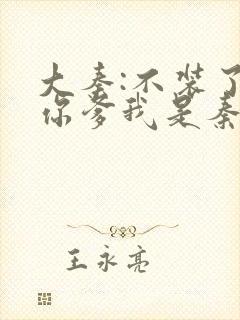 大秦:不装了
你爹我是秦
王永亮